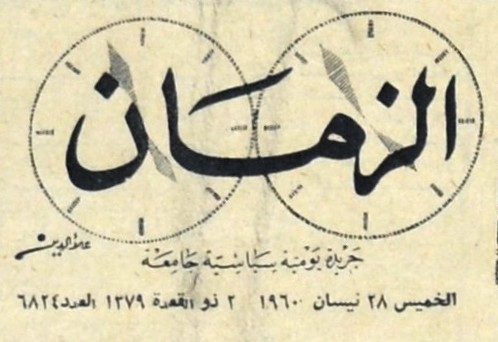 الزمان
علاء الدين
جريدة يومية سياسية جامعة
الخميس ٢٨ نيسان ١٩٦٠ ٢ ذو القعدة ١٣٧٩ العدد ٦٨٢٤